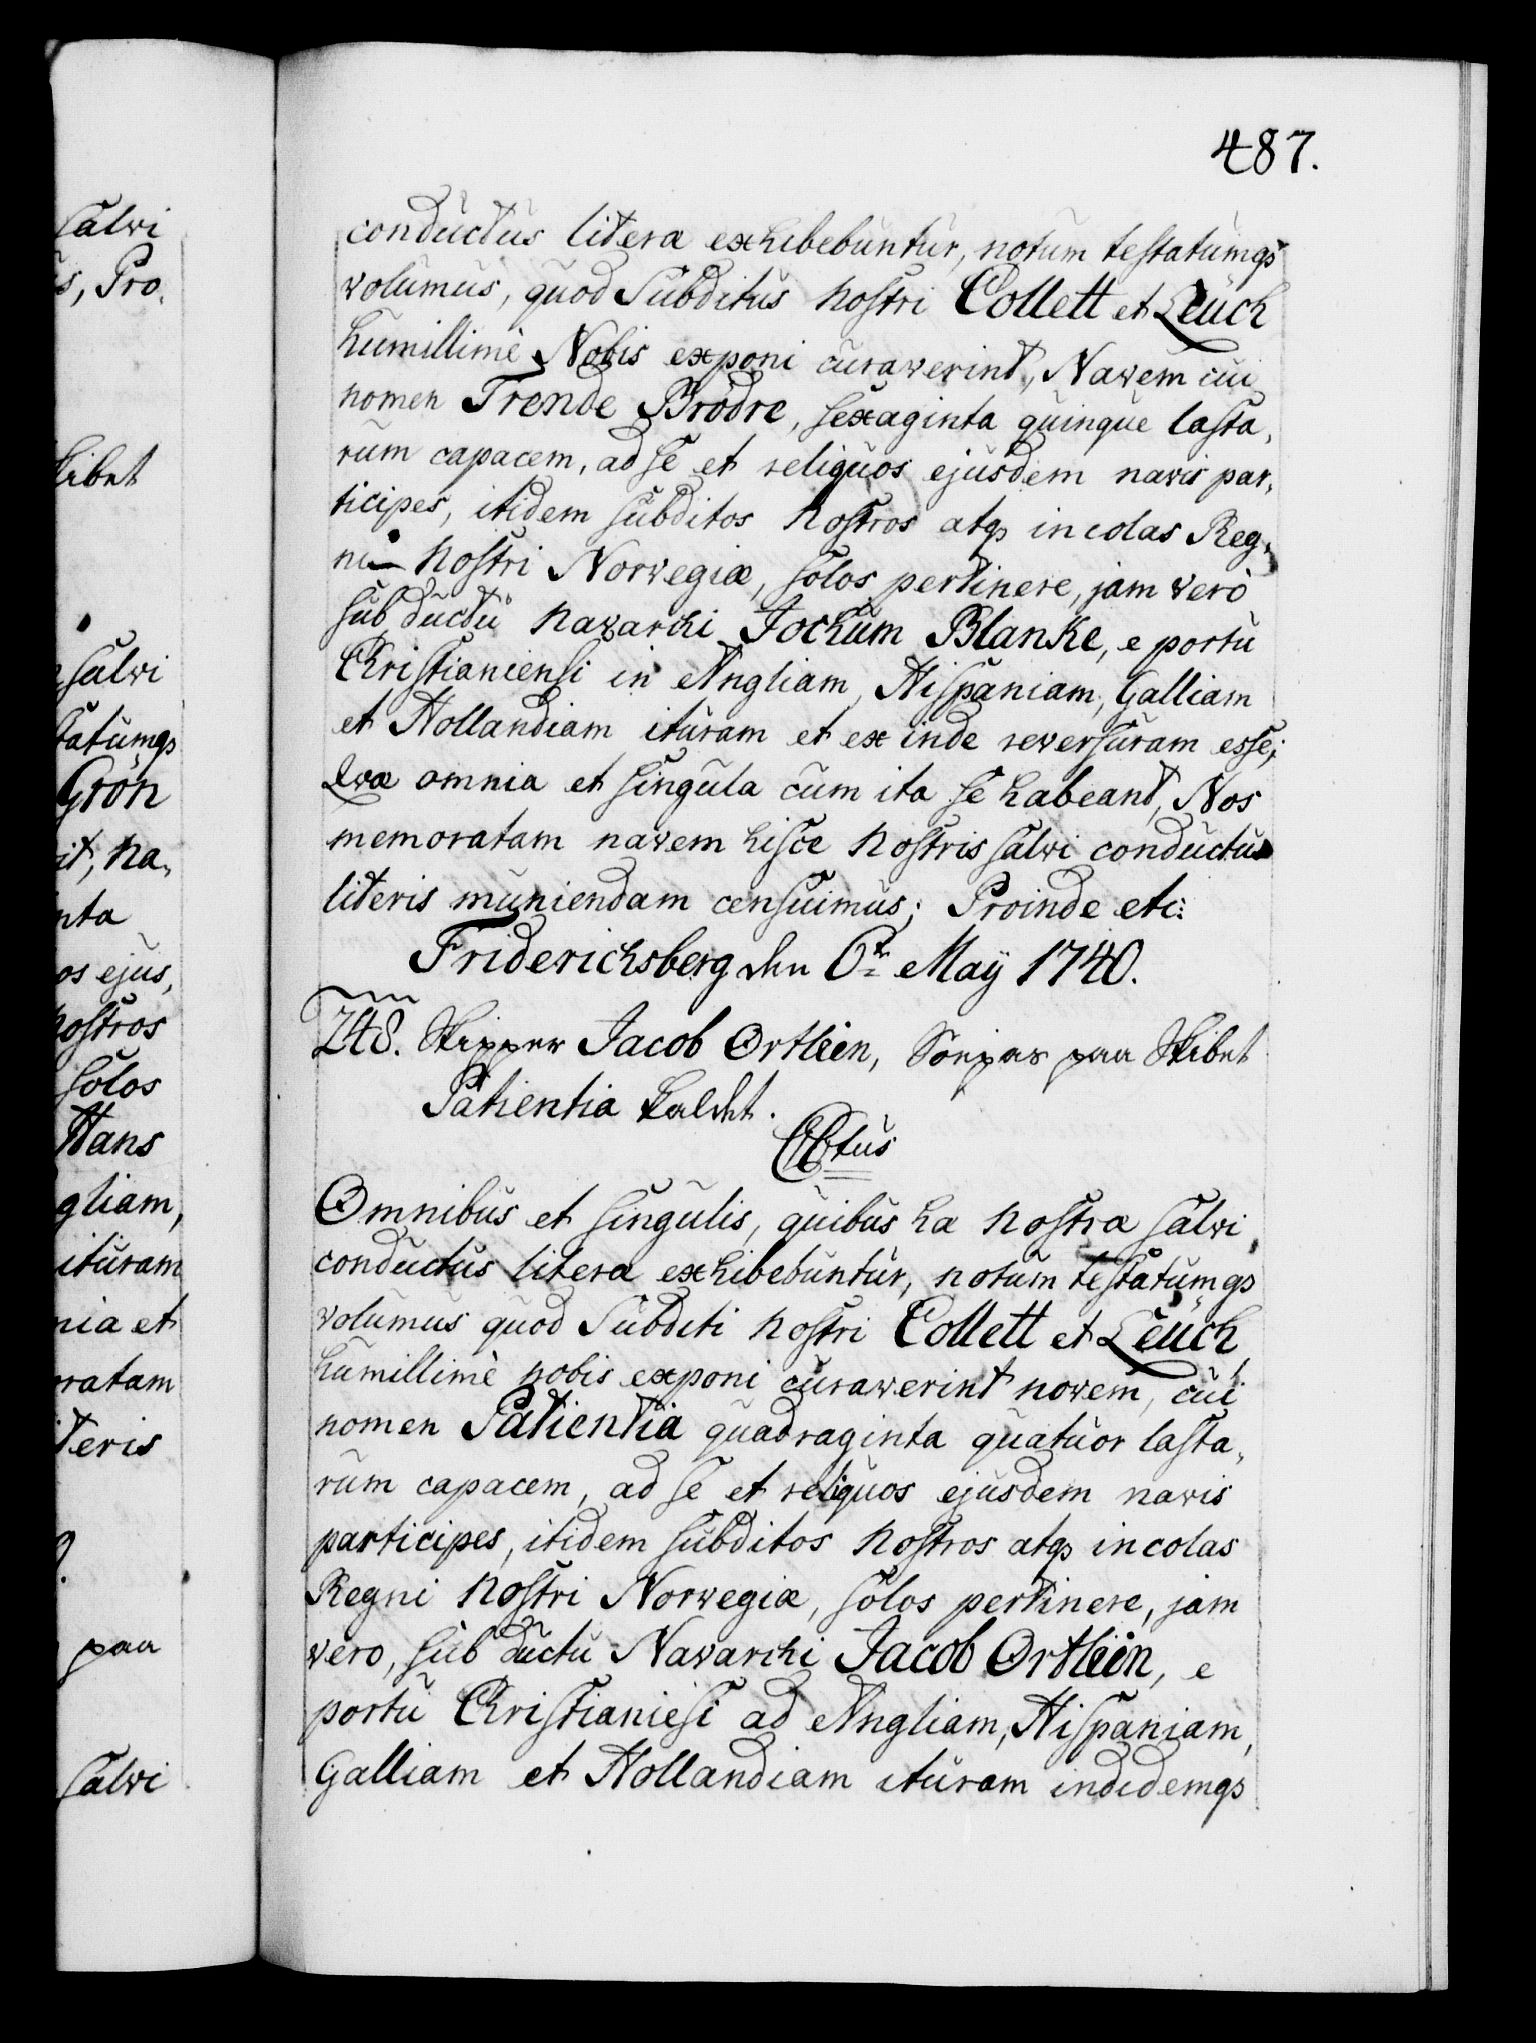 487.
conductus literæ exhibebuntur, notum testatumqꝫ
volumus, quod Subditus nostri Collett et Leuch
humillimè Nobis exponi curaverint, Navem cui
nomen Trende Brödre, sexaginta quinque lasta,
rum capacem, ad se et reliquos ejusdem navis par,
ticipes, itidem subditos nostros atqꝫ incolas Reg,
ni nostri Norvegiæ, solos pertinere, jam verò
sub ductu navarchi Jochum Blanke, e portu
Christianiensi in Angliam, Hispaniam, Galliam
et Hollandiam ituram et ex inde reversuram esse;
Qvæ omnia et singula cum ita se habeant, Nos
memoratam navem hisce nostris salvi conductus
literis muniendam censuimus; Proinde etc:
Friderichsberg den 6te May 1740.
248. Skipper Jacob Ortlein, Søepas paa Skibet
Patientia kaldet.
C6tus
Omnibus et singulis, quibus hæ nostræ salvi
conductus literæ exhibebuntur, notum testatumqꝫ
volumus quod Subditi nostri Collett et Leuch,
humillimè nobis exponi curaverint novem, cui
nomen Patientia quadraginta quatuor lasta,
rum capacem, ad se et reliquos ejusdem navis
participes, itidem subditos nostros atqꝫ incolas
Regni nostri Norvegiæ, solos pertinere, jam
vero, sub ductu Navarchi Jacob Ortlein, e
portu Christianiesi ad Angliam, Hispaniam,
Galliam et Hollandiam ituram indidemqꝫ
salvi
s, Pro,
kibet
salvi
tatumqꝫ
Grön
it, na,
nta
os ejus,
nostros
solos
Hans
gliam,
ituram
nia et
ratam
teris
paa
salvi